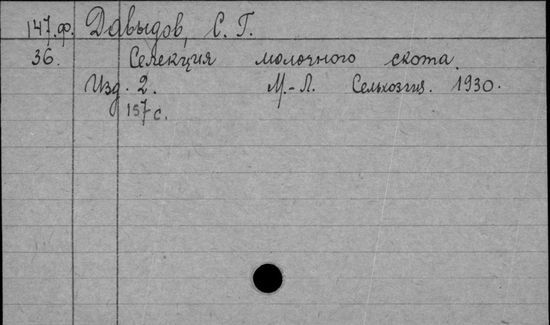 147.ф. Давыдов, С. Г.
36. Селекция молочного скота.
Изд. 2. М.-Л. Сельхозгиз. 1930.
157 с.